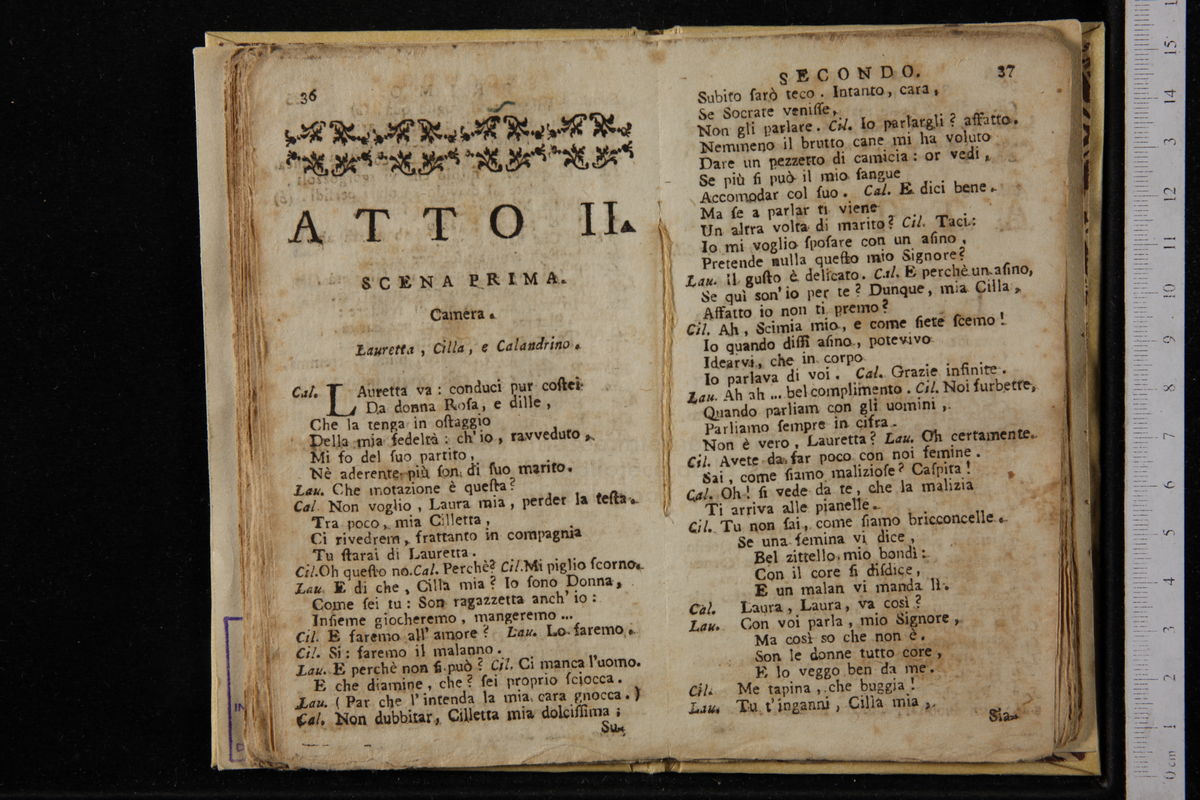 36
ATTO II.
SCENA PRIMA.
Camera.
Lauretta, Cilla, e Calandrino.
Cal. LAuretta va: conduci pur costei
Da donna Rosa, e dille,
Che la tenga in ostaggio
Della mia fedeltà: ch'io, ravveduto,
Mi fo del suo partito,
Nè aderente più son di suo marito.
Lau. Che motazione è questa?
Cal. Non voglio, Laura mia, perder la testa.
Tra poco, mia Cilletta,
Ci rivedrem, frattanto in compagnia
Tu starai di Lauretta.
Cil. Oh questo no. Cal. Perchè? Cil. Mi piglio scorno.
Lau. E di che, Cilla mia? Io sono Donna,
Come sei tu: Son ragazzetta anch'io:
Insieme giocheremo, mangeremo ...
Cil. E faremo all'amore? Lau. Lo faremo.
Cil. Si: faremo il malanno.
Lau. E perchè non si può? Cil. Ci manca l'uomo.
E che diamine, che? sei proprio sciocca.
Lau. (Par che l'intenda la mia cara gnocca.)
Cal. Non dubbitar, Cilletta mia dolcissima;
Su-
SECONDO. 37
Subito sarò teco. Intanto, cara,
Se Socrate venisse,
Non gli parlare. Cil. Io parlargli? affatto.
Nemmeno il brutto cane mi ha voluto
Dare un pezzetto di camicia: or vedi,
Se più si può il mio sangue
Accomodar col suo. Cal. E dici bene.
Ma se a parlar ti viene
Un altra volta di marito? Cil. Taci:
Io mi voglio sposare con un asino,
Pretende nulla questo mio Signore?
Lau. Il gusto è delicato. Cal. E perchè un asino,
Se quì son'io per te? Dunque, mia Cilla,
Affatto io non ti premo?
Cil. Ah, Scimia mio, e come siete scemo!
Io quando dissi asino, potevivo
Idearvi, che in corpo
Io parlava di voi. Cal. Grazie infinite.
Lau. Ah ah ... bel complimento. Cil. Noi furbette,
Quando parliam con gli uomini,
Parliamo sempre in cifra.
Non è vero, Lauretta? Lau. Oh certamente.
Cil. Avete da far poco con noi femine.
Sai, come siamo maliziose? Caspita!
Cal. Oh! si vede da te, che la malizia
Ti arriva alle pianelle.
Cil. Tu non sai, come siamo bricconcelle.
Se una femina vi dice,
Bel zittello mio bondì:
Con il core si disdice,
E un malan vi manda lì.
Cal. Laura, Laura, va così?
Lau. Con voi parla, mio Signore,
Ma così so che non è.
Son le donne tutto core,
E lo veggo ben da me.
Cil. Me tapina, che buggia!
Lau. Tu t'inganni, Cilla mia,
Sia-